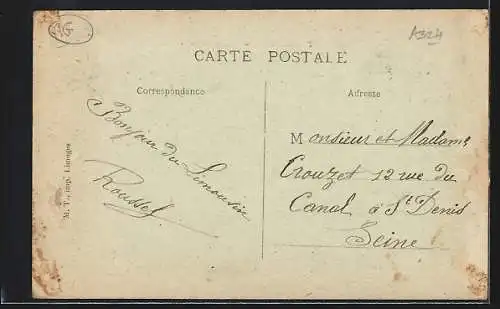 AG
A324
CARTE POSTALE
Correspondance
Adresse
Bonjour du Limousin
Roussel
Monsieur et Madame
Crouzet 12 rue du
Canal à St Denis
Seine
M. T., imp. Limoges